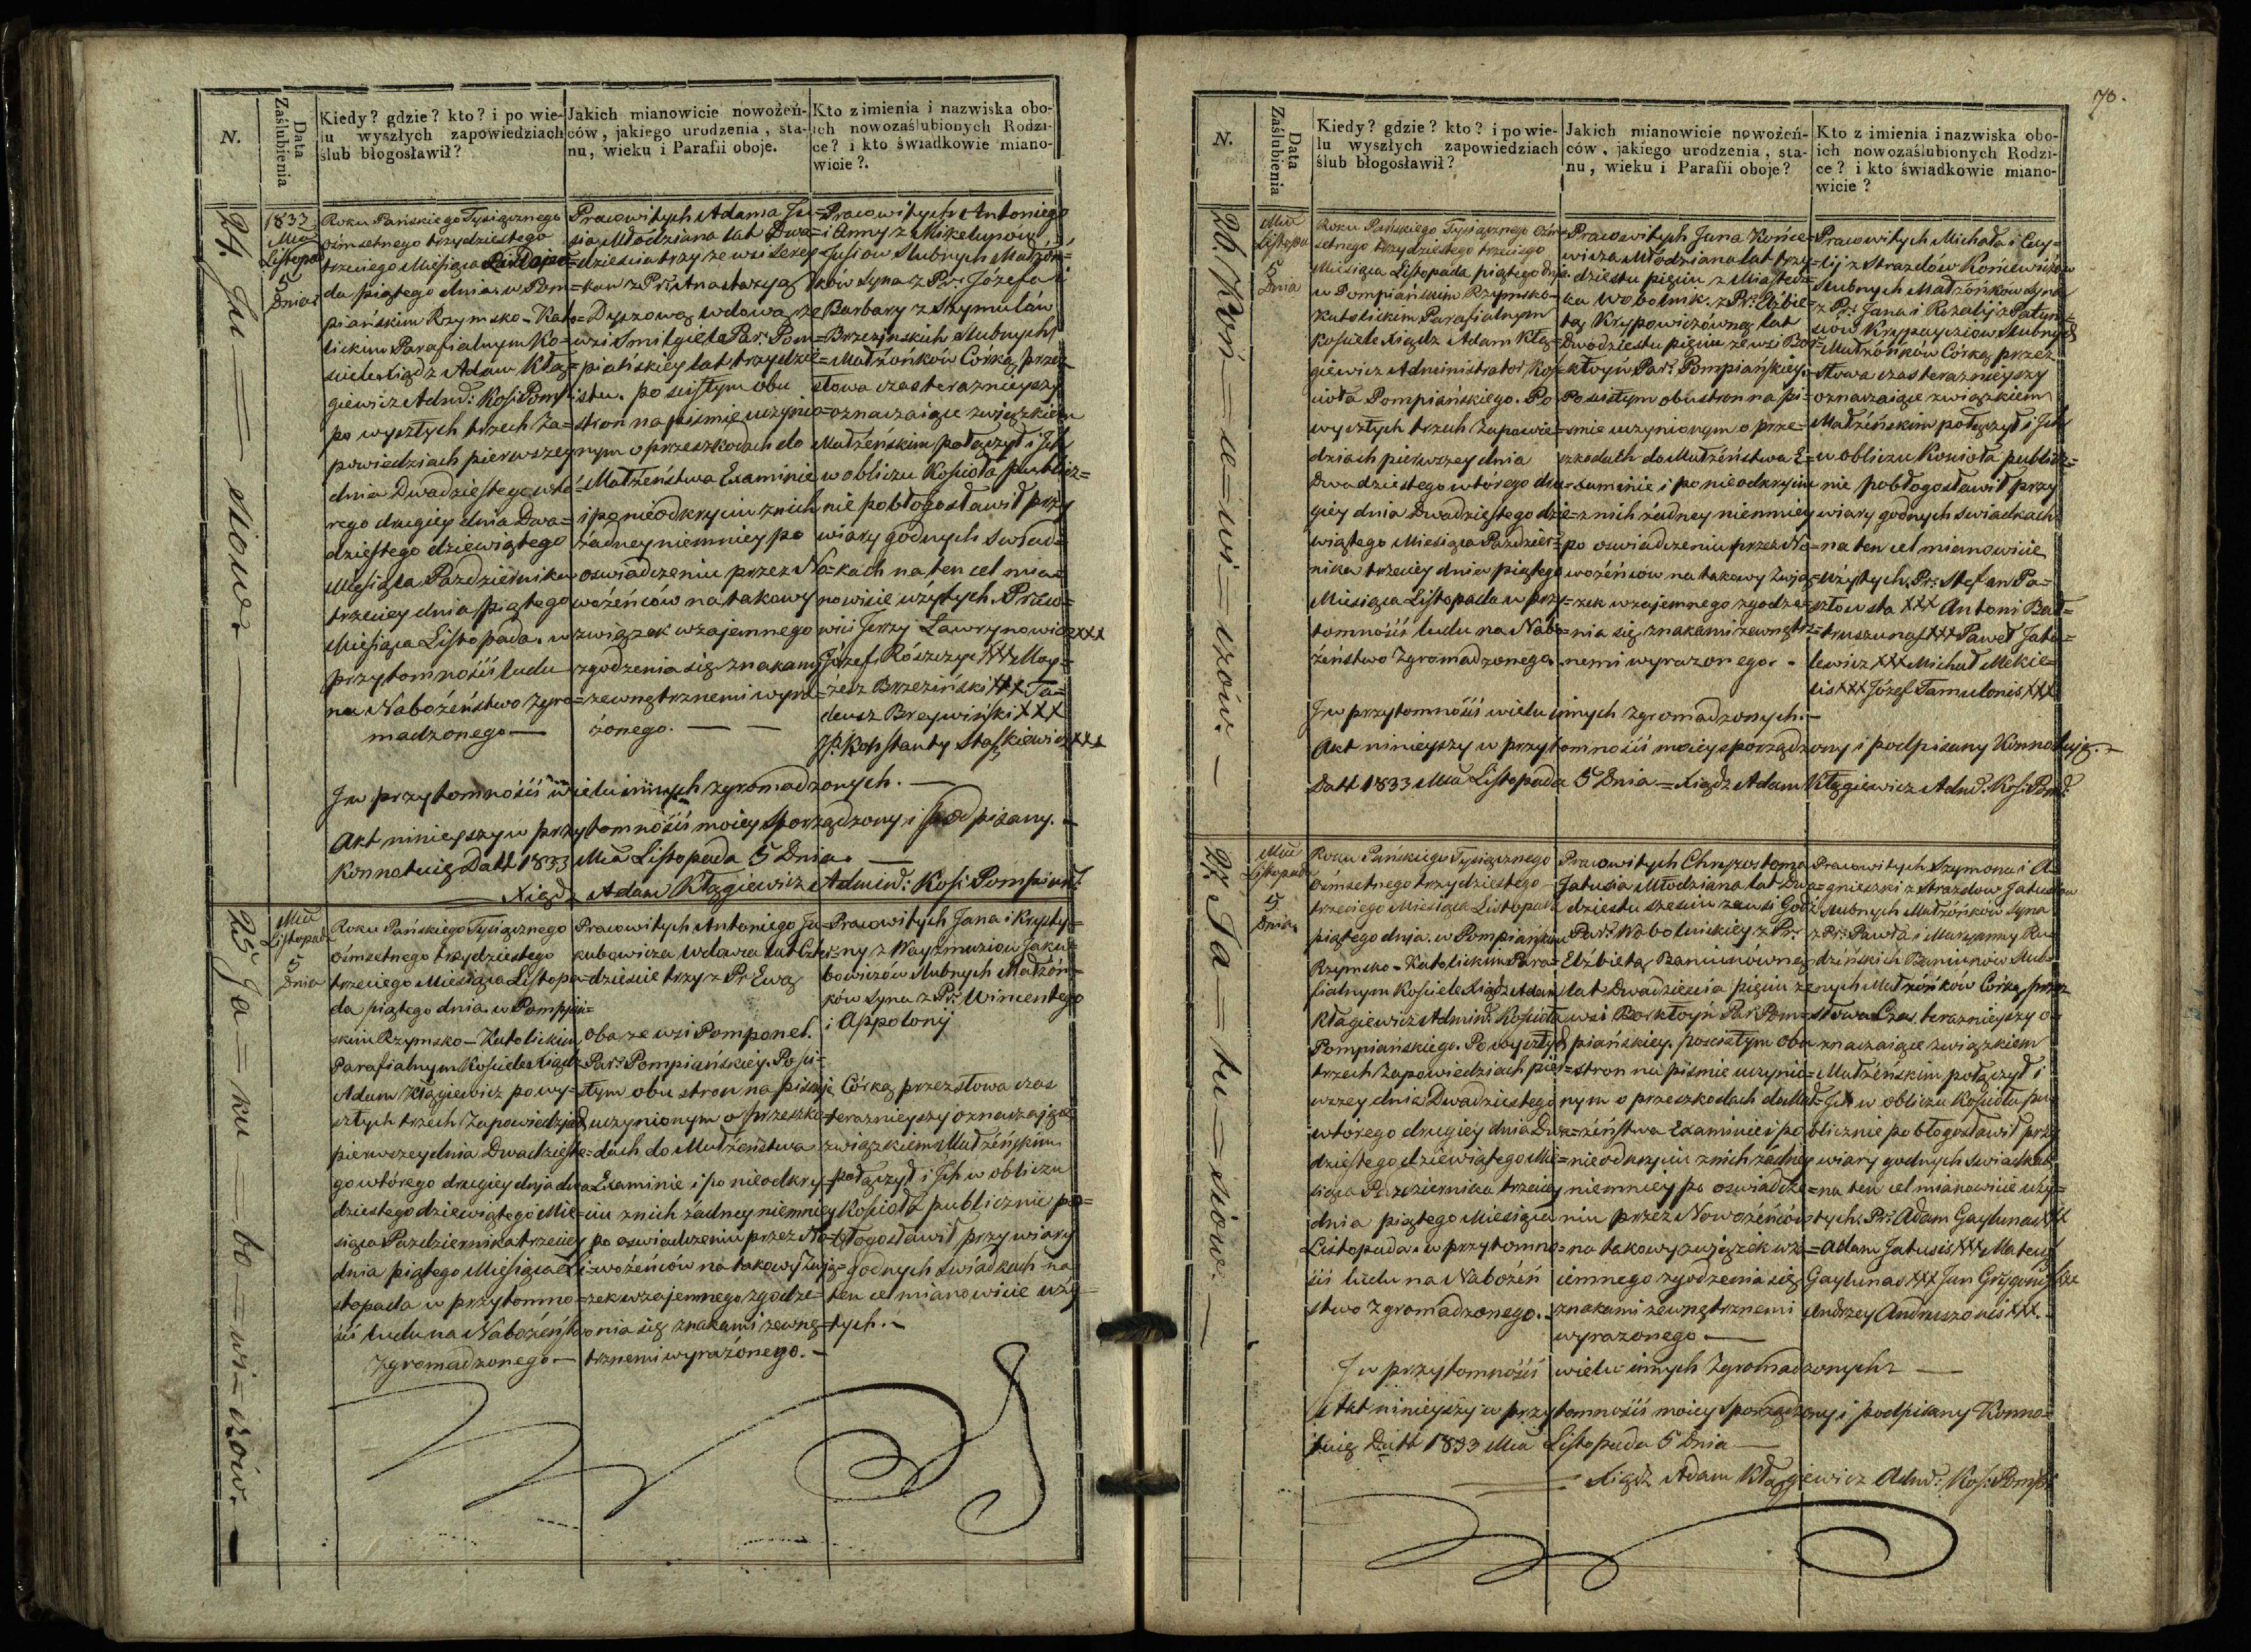 N.
Data Zaślubienia
Kiedy? gdzie? kto? i po wie-
lu wyszłych zapowiedziach
ślub błogosławił?
Jakich mianowicie nowożeń-
ców, jakiego urodzenia, sta-
nu, wieku i Parafii oboje.
Kto z imienia i nazwiska obo-
ich nowozaślubionych Rodzi-
ce? i kto świadkowie miano-
wicie?.
24. Ju = siow.
1833
Mca
Listopa
5
Dnia
Roku Pańskiego Tysiącznego
ośmsetnego trzydziestego
trzeciego Miesiąca Listopa=
da piątego dnia. w Pom=
piańskim Rzymsko-Kato=
lickim Parafialnym Ko=
ściele Xiądz Adam Kłą=
giewicz Admd: Kosi: Pomp
po wyszłych trzech Za=
powiedziach pierwszey
dnia Dwadziestego wtó=
rego drugiey dnia Dwa=
dziestego dziewiątego
Miesiąca Pazdziernika
trzeciey dnia piątego
Miesiąca Listopada. w
przytomności ludu
na Nabożeństwo Zgro=
madzonego —
Pracowitych Adama Ju=
sia Młodziana lat Dwa=
dziescia trzy ze wsi
z Pr: Anastazyą
Dyszową wdową ze
wsi Smilgiele Par: Pom=
piańskiey lat trzydzie=
stu. po scisłym obu
stron na piśmie uczynio=
nym o przeszkodach do
Małżeństwa Examinie
i po nieodkryciu z nich
żadney niemniey po
oswiadczeniu przez No=
wożeńców na takowy
związek wzajemnego
zgodzenia się znakami
zewnętrznemi wyra=
żonego. —
Pracowitych Antoniego
i Anny z Mikelunów
Jusiow Slubnych Małżon=
ków Syna z Pr: Józefa i
Barbary z Szymulów
Brzezinskich Slubnych
Małżonków Córką przez
słowa czas teraznieyszy
oznaczaiące związkiem
Małżeńskim połączył i Ich
w obliczu Kościoła publicz=
nie pobłogosławił przy
wiary godnych Swiad=
kach na ten cel mia=
nowicie użytych. Praco=
wici Jerzy Lawrynowicz xxx
Józef Rószczyc xxx May=
żesz Brzeziński xxx Ta=
deusz Breywiński xxx
JP. Konstanty Staszkiewicz xxx
I w przytomności wielu innych zgromadzonych. —
Akt ninieyszy w przytomności moiey sporządzony i podpisany. —
Konnotuię Datt 1833 Mca Listopada 5 Dnia. —
Xiądz Adam Kłągiewicz Admind: Kosi: Pompiand:
25 Ja=ku=bo=wi=czów.
Mca
Listopada
5
Dnia
Roku Pańskiego Tysiącznego
ośmsetnego trzydziestego
trzeciego Miesiąca Listopa=
da piątego dnia. w Pompiań=
skim Rzymsko-Katolickim
Parafialnym Kościele Xiądz
Adam Kłągiewicz po wy=
szłych trzech Zapowiedziach
pierwszey dnia Dwadzieste=
go wtórego drugiey dnia dwa=
dziestego dziewiątego Mie=
siąca Pazdziernika trzeciey
dnia piątego Miesiąca Li=
stopada w przytomno=
ści ludu na Nabożeństwo
Zgromadzonego —
Pracowitych Antoniego Ja=
kubowicza Wdowca lat Czter=
dziescie trzy z Pr Ewą
Oba ze wsi Pomponel.
Par: Pompiańskiey. Po sci=
słym obu stron na piśmie
uczynionym o przeszko=
dach do Małżeństwa
Examinie i po nieodkry=
ciu z nich żadney niemniey
po oswiadczeniu przez No=
wożeńców na takowy Zwią=
zek wzajemnego zgodze=
nia się znakami zewnę=
trznemi wyrażonego. —
Pracowitych Jana i Krysty=
ny z Wayzmuziow Jaku=
bowiczów Slubnych Małżon=
ków Syna z Pr: Wincentego
i Appolonij
Córką przez słowa czas
teraznieyszy oznaczaiące
związkiem Małżeńskim
połączył i Ich w obliczu
Kościoła publicznie po=
błogosławił przy wiary
godnych Swiadkach na
ten cel mianowicie uży=
tych. —
70.
N.
Data Zaślubienia
Kiedy? gdzie? kto? i po wie-
lu wyszłych zapowiedziach
ślub błogosławił?
Jakich mianowicie nowożeń-
ców, jakiego urodzenia, sta-
nu, wieku i Parafii oboje?
Kto z imienia i nazwiska obo-
ich nowozaślubionych Rodzi-
ce? i kto świadkowie miano-
wicie?
26. Koń=ce=wi=czów. —
Mca
Listopada
5
Dnia
Roku Pańskiego Tysiącznego Ośm=
setnego trzydziestego trzeciego
Miesiąca Listopada piątego dnia
w Pompiańskim Rzymsko=
Katolickim Parafialnym
Kościele Xiądz Adam Kłą=
giewicz Administrator Koś=
cioła Pompiańskiego. Po
wyszłych trzech Zapowie=
dziach pierwszey dnia
Dwadziestego wtórego dru=
giey dnia Dwadziestego dzie=
wiątego Miesiąca Pazdzier=
nika trzeciey dnia piątego
Miesiąca Listopada w przy=
tomności ludu na Nabo=
żeństwo Zgromadzonego.
Pracowitych Jana Końce=
wicza Młodziana lat trzy=
dziestu pięciu z Miastecz=
ka Wobolnik. z Pr: Elżbie=
tą Krypowiczówną lat
Dwodziestu pięciu ze wsi Bor=
kłoyń Par: Pompiańskiey.
Po scisłym obu stron na pi=
smie uczynionym o prze=
szkodach do Małżeństwa E=
xaminie i po nieodkryciu
z nich żadney niemniey
po oswiadczeniu przez No=
wożeńców na takowy Zwią=
zek wzajemnego zgodze=
nia się znakami zewnętrz=
nemi wyrazonego. -
Pracowitych Michała i Cecy=
lij z Strazdów Końcewiczów
Slubnych Małżonków Syna
z Pr: Jana i Rozalij z
Slubnych
Małżonków Córką przez
słowa czas teraznieyszy
oznaczaiące związkiem
Małżeńskim połączył i Ich
w obliczu Kościoła publicz=
nie pobłogosławił przy
wiary godnych Swiadkach
na ten cel mianowicie
użytych. Pr: Stefan Pa=
szłowsta xxx Antoni Bał=
truszunas xxx Paweł Jatu=
lewicz xxx Michał Mekie=
lis xxx Józef Tamulonis xxx
I w przytomności wielu innych zgromadzonych. —
Akt ninieyszy w przytomności moiey sporządzony i podpisany Konnotuję. —
Datt 1833 Mca Listopada 5 Dnia = Xiądz Adam Kłągiewicz Admd: Kosi: Pomd:
27. Ja=tu=siow. —
Mca
Listopada
5
Dnia
Roku Pańskiego Tysiącznego
Ośmsetnego trzydziestego
trzeciego Miesiąca Listopada
piątego dnia. w Pompiańskim
Rzymsko-Katolickim Para=
fialnym Kościele Xiądz Adam
Kłagiewicz Admind: Kościoła
Pompiańskiego. Po wyszłych
trzech Zapowiedziach pier=
wszey dnia Dwadziestego
wtórego drugiey dnia Dwa=
dziestego dziewiątego Mie=
siąca Pazdziernika trzeciey
dnia piątego Miesiąca
Listopada. w przytomno=
ści ludu na Nabożeń
stwo Zgromadzonego. -
Pracowitych Chryzostoma
Jatusia Młodziana lat Dwa=
dziestu szesciu ze wsi
Par: Wobolnickiey z Pr:
Elżbietą Baniunówną
lat Dwadziescia pięciu ze
wsi Borkłoyń Par: Pom=
piańskiey. po scisłym obu
stron na piśmie uczynio=
nym o przeszkodach do Mał=
żeństwa Examinie i po
nieodkryciu z nich żadney
niemniey po oswiadcze=
niu przez Nowożeńców
na takowy związek wza=
iemnego zgodzenia się
znakami zewnętrznemi
wyrazonego —
Pracowitych Szymona i A=
gnieszki z Strazdow Jatusiow
Slubnych Małżonków Syna
z Pr: Pawła i Maryanny Ru=
dzińskich Baniunów Slub=
nych Małżonków Córką przez
słowa Czas teraznieyszy o=
znaczaiące związkiem
Małżeńskim połączył i
Ich w obliczu Kościoła pu=
blicznie pobłogosławił przy
wiary godnych Swiadkach
na ten cel mianowicie uży=
tych. Pr: Adam Gaylunas xxx
Adam Jatusis xxx Mateusz
Gaylunas xxx Jan Grygonis xxx
Andrzey Andruszonis xxx. -
I w przytomności wielu innych Zgromadzonych —
Akt ninieyszy w przytomności moiey Sporządzony i podpisany Konno=
tuię Datt 1833 Mca Listopada 5 Dnia —
Xiądz Adam Kłągiewicz Admd: Kosi: Pompd: